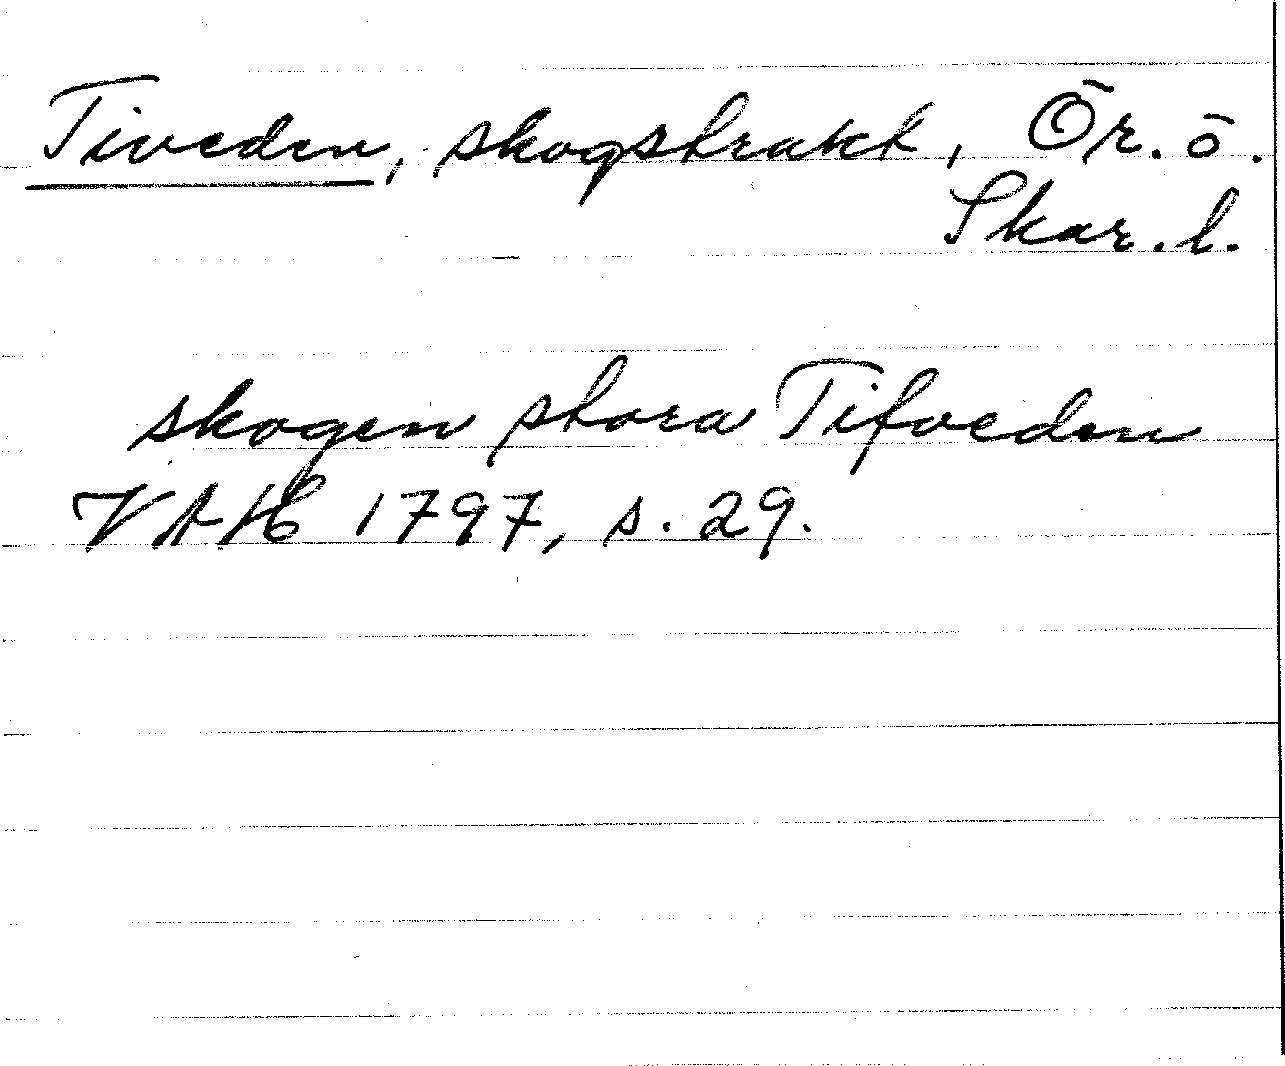 Tiveden, skogstrakt, Ör. ö.
Skar. l.
skogen stora Tifveden
VAH 1797, s. 29.